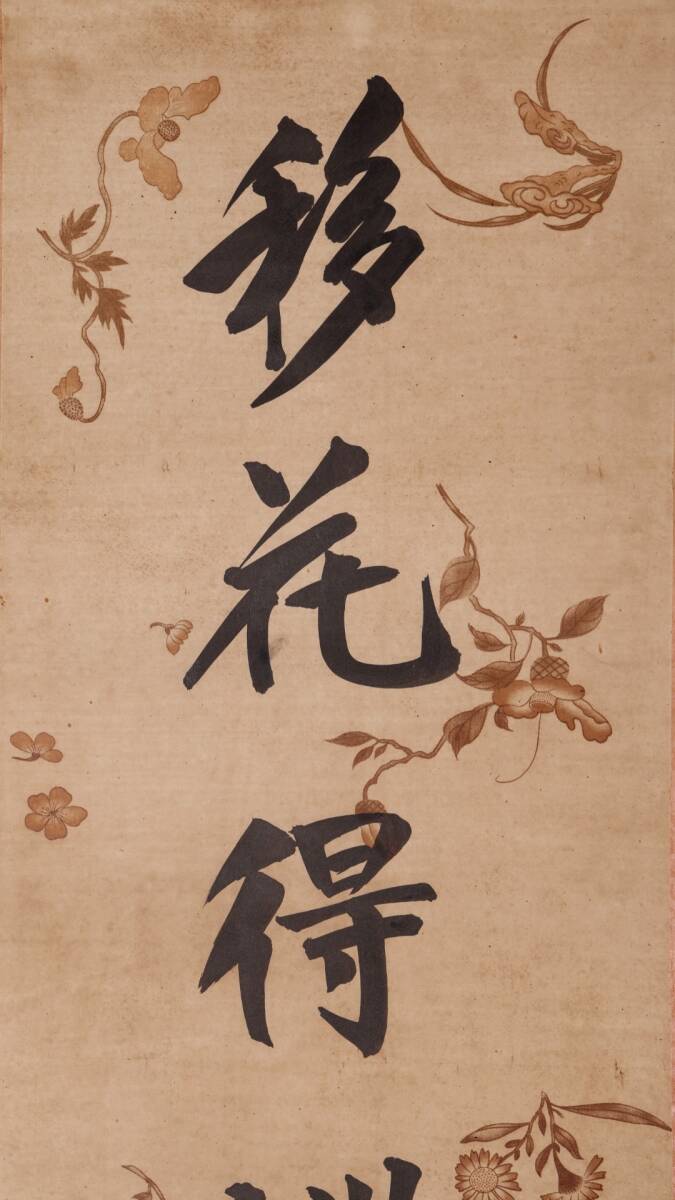 移花得